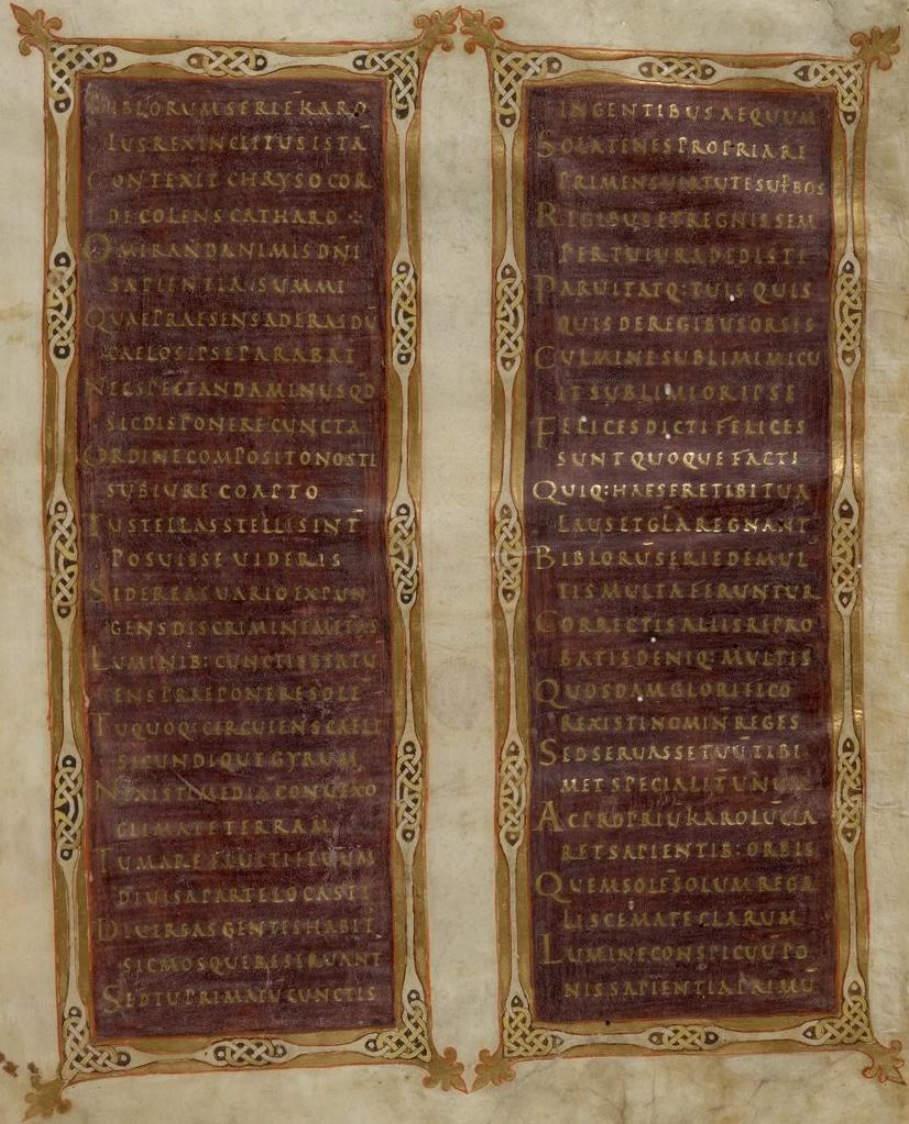 BIBLORUM SERIE KARO
LUS REX INCLITUS ISTĀ
CONTEXIT CHRYSO COR
DE COLENS CATHARO
O MIRANDA NIMIS DN̄I
SAPIENTIA SUMMI
QUAE PRAESENS ADERAS DŪ
CAELOS IPSE PARABAT
NEC SPECTANDA MINUS QD
SIC DISPONERE CUNCTA
ORDINE COMPOSITO NOSTI
SUB IURE COAPTO
TU STELLAS STELLIS INT̄
POSUISSE UIDERIS
SIDEREAS UARIO EXPUN
GENS DISCRIMINE METAS
LUMINIB: CUNCTIS STATU
ENS PRAEPONERE SOLĒ
TU QUOQ: CIRCUIENS CAELI
SIC UNDIQUE GYRUM
NEXISTI MEDIĀ CONUEXO
CLIMATE TERRAM
TU MARE FLUCTIFLUUM
DIUISA PARTE LOCASTI
DIUERSAS GENTES HABIT̄
SIC MOSQUE RESERUANT
SED TU PRIMATŪ CUNCTIS
IN GENTIBUS AEQUUM
SOLA TENES PROPRIA RE
PRIMENS UIRTUTE SUPBOS
REGIBUS ET REGNIS SEM
PER TUI IURA DEDISTI
PARUIT ATQ: TUIS QUIS
QUIS DE REGIBUS ORSIS
CULMINE SUBLIMI MICU
IT SUBLIMIOR IPSE
FELICES DICTI FELICES
SUNT QUOQUE FACTI
QUIQ: HAESERE TIBI TUA
LAUS ET GLĀ REGNANT
BIBLORŪ SERIE DE MUL
TIS MULTA FERUNTUR
CORRECTIS ALIIS REPRO
BATIS DENIQ: MULTIS
QUOSDAM GLORIFICO
REXISTI NOMIN̄ REGES
SED SERUASSE TUŪ TIBI
MET SPECIALIT̄ UNUM
AC PROPRIŪ KAROLŪ CLA
RET SAPIENTIB: ORBIS
QUEM SOLĒ SOLUM REGA
LI SCEMATE CLARUM
LUMINE CONSPICUU PO
NIS SAPIENTIA PRIMŪ